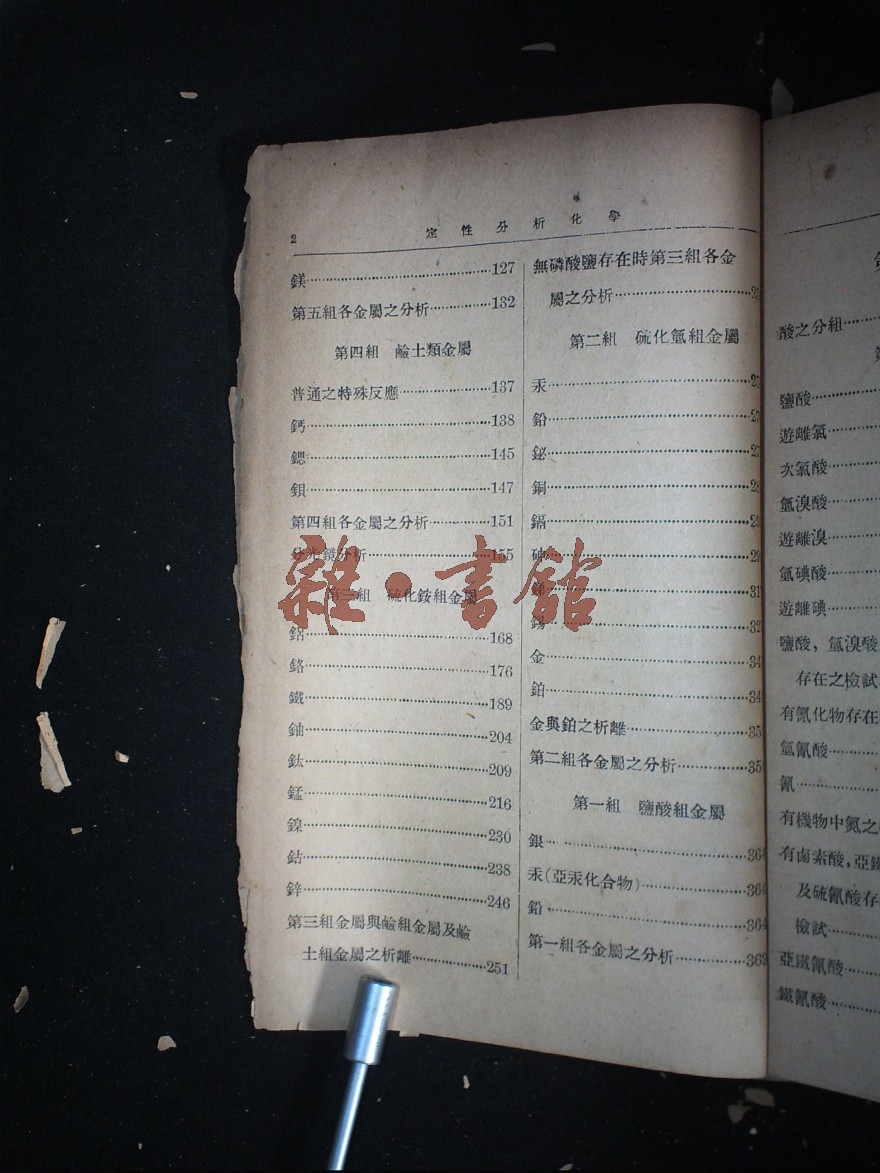 2 定性分析化學
鎂…………127
第五組各金屬之分析…………132
第四組 鹼土類金屬
普通之特殊反應…………137
鈣…………138
鍶…………145
鋇…………147
第四組各金屬之分析…………151
分光鏡分析…………155
第三組 硫化銨組金屬
鋁…………168
鉻…………176
鐵…………189
鈾…………204
鈦…………209
錳…………216
鎳…………230
鈷…………238
鋅…………246
第三組金屬與鹼組金屬及鹼
土組金屬之析離…………251
無磷酸鹽存在時第三組各金
屬之分析…………
第二組 硫化氫組金屬
汞…………
鉛…………
鉍…………
銅…………
鎘…………
砷…………
銻…………
錫…………
金…………
鉑…………
金與鉑之析離…………
第二組各金屬之分析…………
第一組 鹽酸組金屬
銀…………364
汞(亞汞化合物)…………364
鉛…………364
第一組各金屬之分析…………369
酸之分組…………
鹽酸…………
遊離氯…………
次氯酸…………
氫溴酸…………
遊離溴…………
氫碘酸…………
遊離碘…………
鹽酸,氫溴酸
存在之檢試
有氰化物存在
氫氰酸…………
氰…………
有機物中氮之
有鹵素酸,亞鐵
及硫氰酸存
檢試…………
亞鐵氰酸…………
鐵氰酸…………
雜·書館